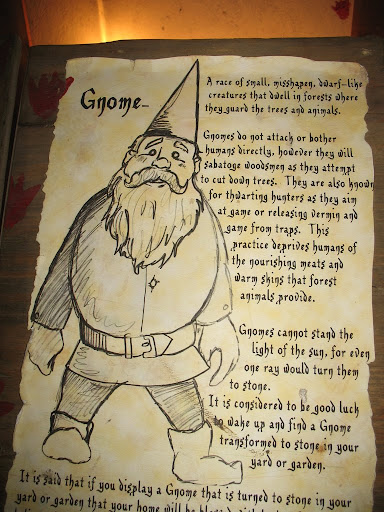 Gnome-
A race of small, misshapen, dwarf-like
creatures that dwell in forests where
they guard the trees and animals.
Gnomes do not attack or bother
humans directly, however they will
sabatoge woodsmen as they attempt
to cut down trees. They are also known
for thwarting hunters as they aim
at game or releasing vermin and
game from traps. This
practice deprives humans of
the nourishing meats and
warm skins that forest
animals provide.
Gnomes cannot stand the
light of the sun, for even
one ray would turn them
to stone.
It is considered to be good luck
to wake up and find a Gnome
transformed to stone in your
yard or garden.
It is said that if you display a Gnome that is turned to stone in your
yard or garden that your home will be